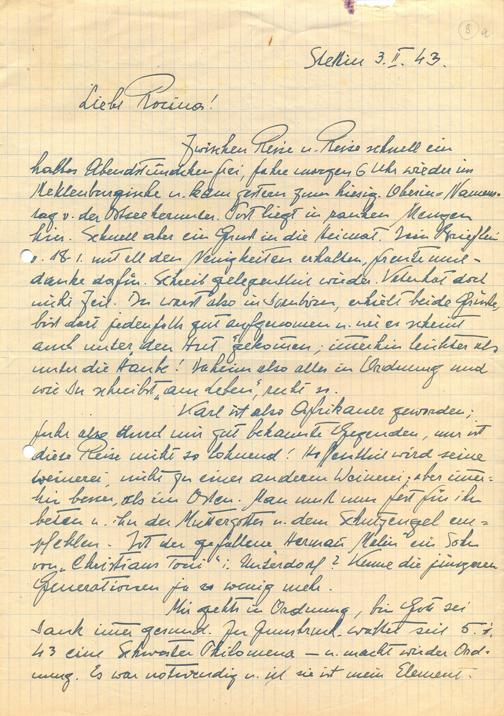 8 a
Stettin 3.II.43.
Liebe Rosina!
Zwischen Reise u. Reise schnell ein
halbes Abendstündchen frei, fahre morgen 6 Uhr wieder ins
Meklenburgische u. kam gestern zum hiesig. Oberin-Namens-
tag v. der Ostsee herunter. Post liegt in Mengen
hier. Schnell aber ein Gruß in die Heimat. Dein Brieflein
v. 18.1. mit all den Neuigkeiten erhalten, freute mich -
danke dafür. Schreib gelegentlich wieder. Vater hat doch
nicht Zeit. Du warst also in , erhielt beide Grüße,
bist dort jedenfalls gut aufgenommen u. wie es scheint
auch unter den Hut gekommen, immerhin leichter als
unter die Haube! Daheim also alles in Ordnung und
wie Du schreibst „am Leben", recht so.
Karl ist also Afrikaner geworden;
fuhr also durch mir gut bekannte Gegenden, nur ist
diese Reise nicht so lohnend! Hoffentlich wird seine
nicht zu einer anderen aber immer-
hin besser, als im Osten. Man muß nun fest für ihn
beten u. ihn der Muttergottes u. dem Schutzengel em-
pfehlen. Ist der gefallene Herman ein Sohn
von „Christians Toni" i. Unterdorf? Kenne die jüngeren
Generationen ja so wenig mehr.
Mir gehts in Ordnung, bin Gott sei
Dank immer gesund. In Innsbruck waltet seit 5.1.
43 eine Schwester Philomena – u. macht wieder Ord-
nung. Es war notwendig u. ist sie ist mein Element.